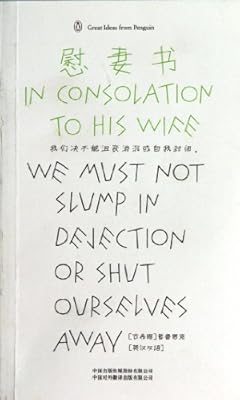 Great Ideas from Penguin
慰妻书
IN CONSOLATION
TO HIS WIFE
我们决不能沮丧消沉或自我封闭。
WE MUST NOT
SLUMP IN
DEJECTION
OR SHUT
OURSELVES
AWAY
[古希腊]普鲁塔克
[英汉双语]
中国出版传媒股份有限公司
中国对外翻译出版有限公司